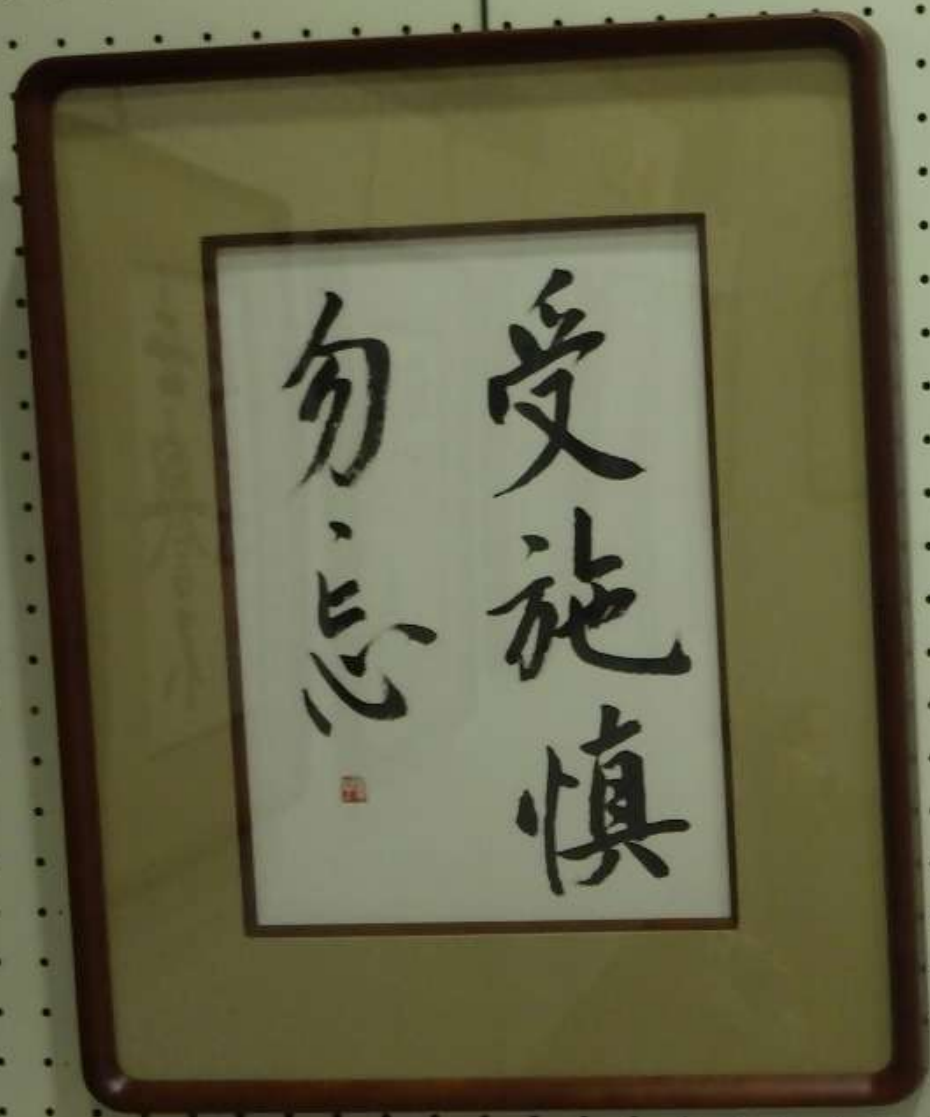 受施慎
勿忘